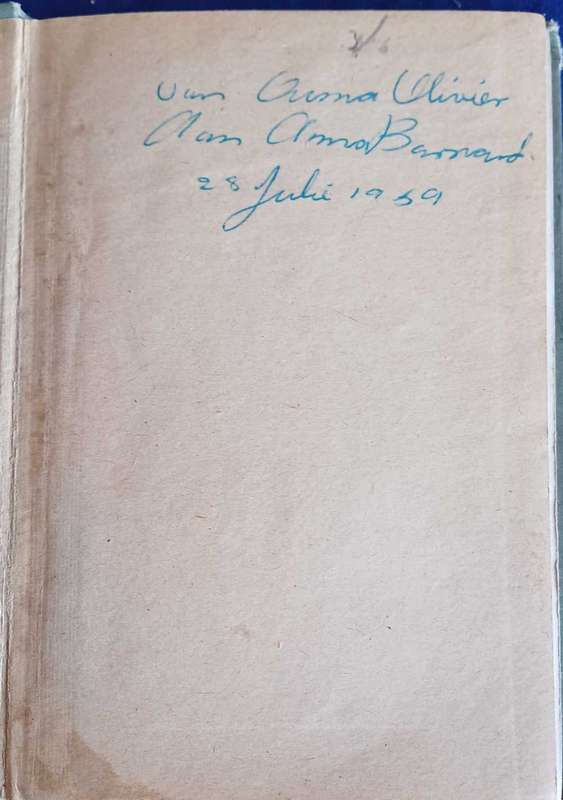 Van Ouma Olivier
Aan Anna Barnard.
28 Julie 1959